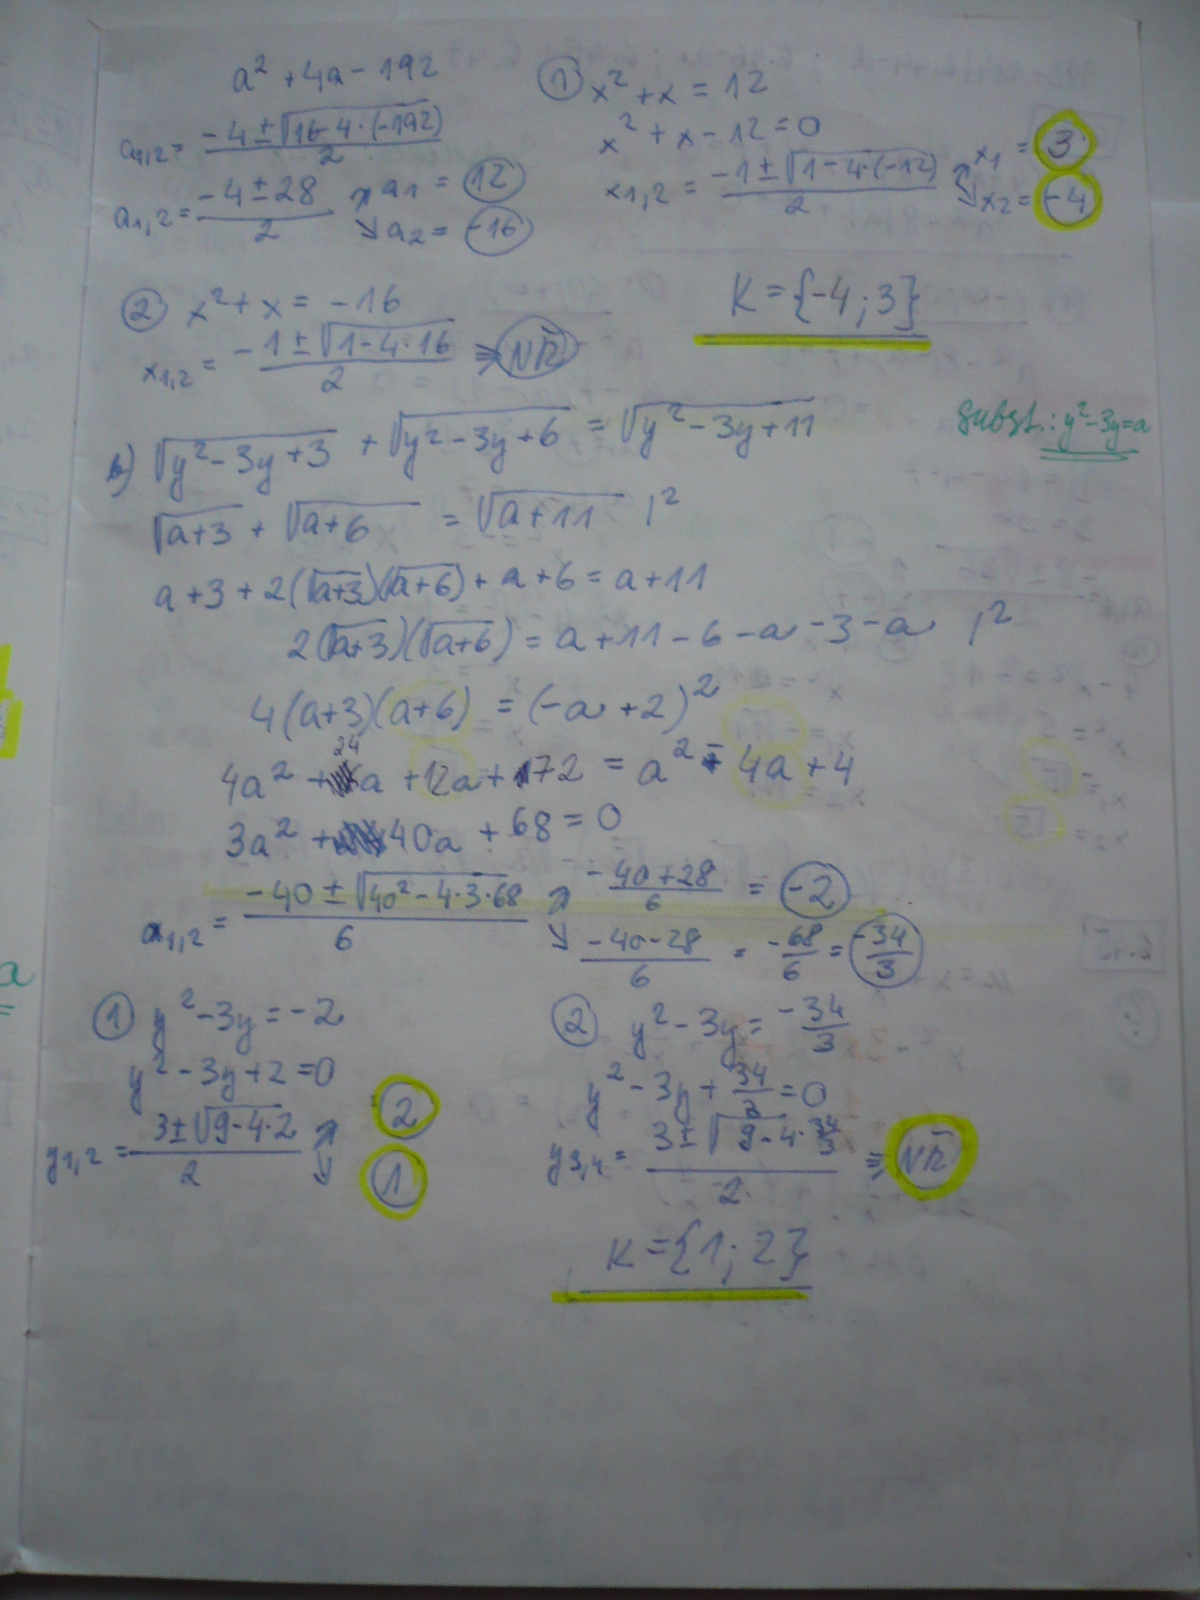 a² + 4a - 192
a1,2 = (-4 ± √(16 - 4·(-192)))/2
a1,2 = (-4 ± 28)/2 ↗ a1 = 12
↘ a2 = -16
① x² + x = 12
x² + x - 12 = 0
x1,2 = (-1 ± √(1 - 4·(-12)))/2 ↗ x1 = 3
↘ x2 = -4
② x² + x = -16
x1,2 = (-1 ± √(1 - 4·16))/2 ⇒ NŘ
K = {-4; 3}
b) √(y² - 3y + 3) + √(y² - 3y + 6) = √(y² - 3y + 11)
subst.: y² - 3y = a
√(a+3) + √(a+6) = √(a+11) |²
a + 3 + 2(√(a+3))(√(a+6)) + a + 6 = a + 11
2(√(a+3))(√(a+6)) = a + 11 - 6 - a - 3 - a |²
4(a+3)(a+6) = (-a + 2)²
4a² + 24a + 12a + 72 = a² - 4a + 4
3a² + 40a + 68 = 0
a1,2 = (-40 ± √(40² - 4·3·68))/6 ↗ (-40+28)/6 = -2
↘ (-40-28)/6 = -68/6 = -34/3
① y² - 3y = -2
y² - 3y + 2 = 0
y1,2 = (3 ± √(9 - 4·2))/2 ↗ 2
↘ 1
② y² - 3y = -34/3
y² - 3y + 34/3 = 0
y3,4 = (3 ± √(9 - 4·34/3))/2 ⇒ NŘ
K = {1; 2}